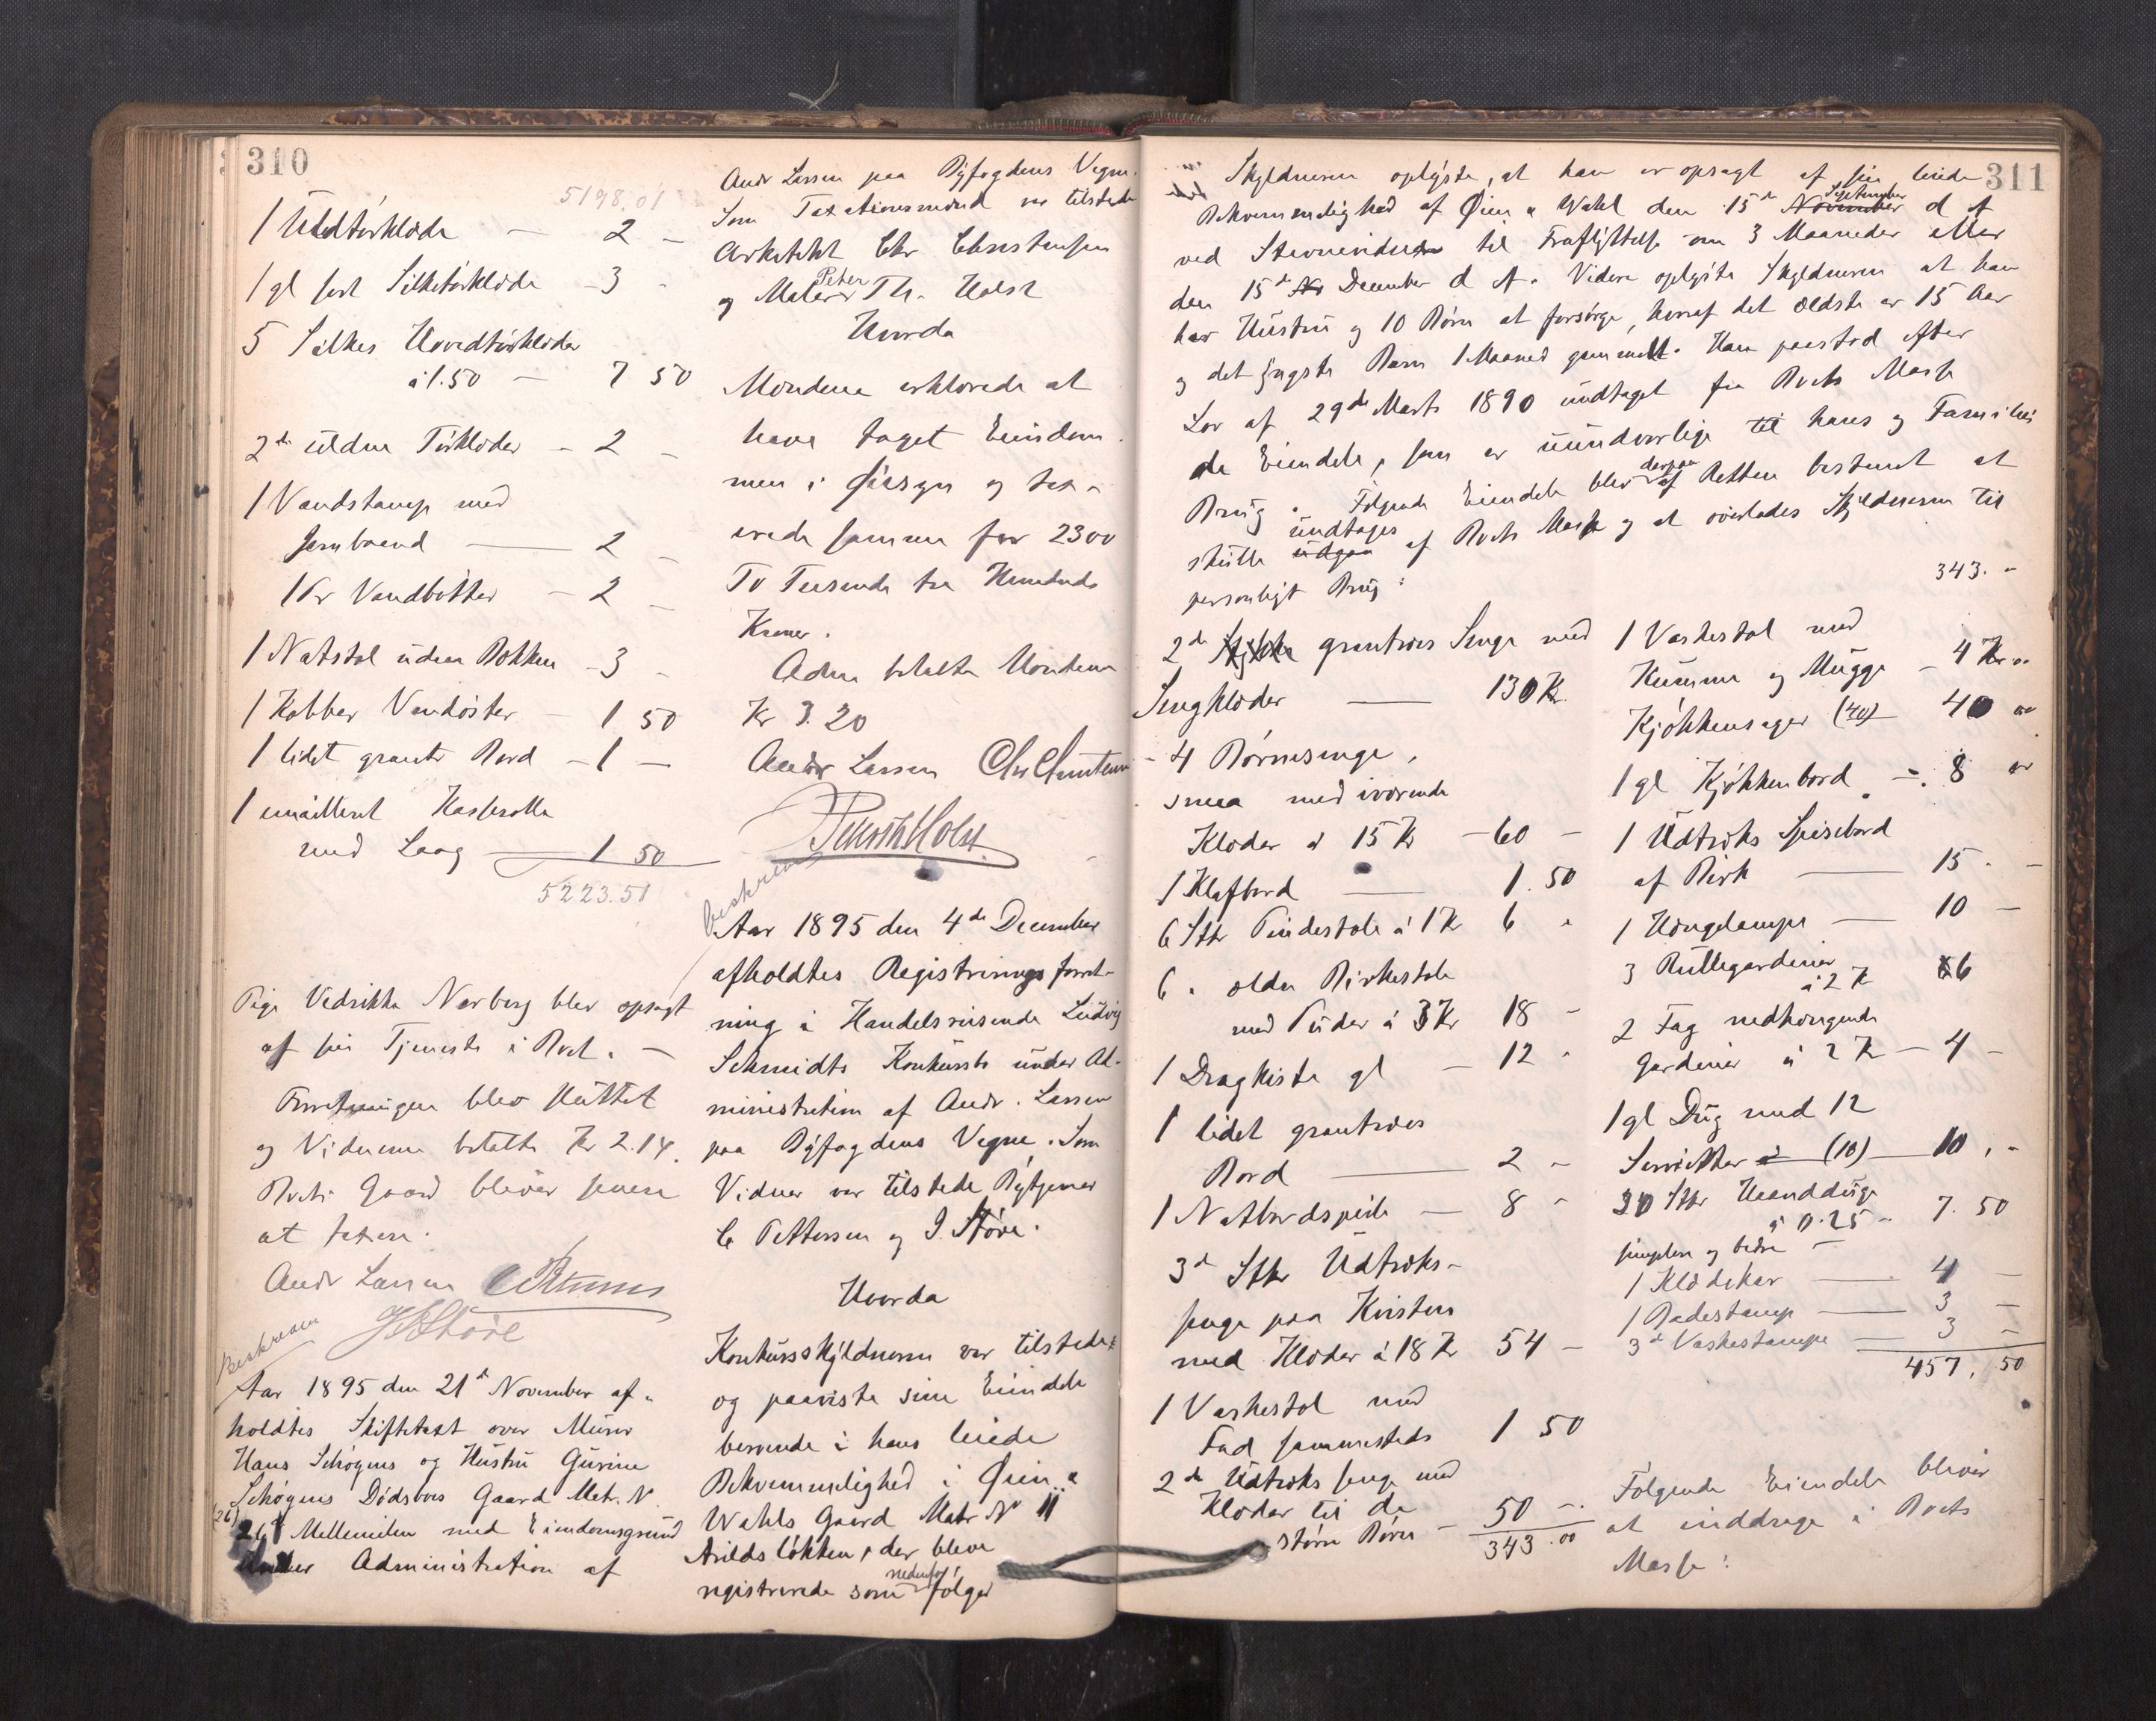 310
5198.01
1 Uldtørklæde — 2 –
1 gl sort Silketørklæde – 3 –
5 Silkes Hovedtørklæder
á 1.50 — 7 50
2de uldne Tørklæder – 2 –
1 Vandstamp med
Jernbaand — 2 –
1 Pr Vandbøtter – 2 –
1 Natstol uden Bøkken – 3 –
1 Kobber Vandøster – 1 50
1 lidet graat Bord – 1 –
1 emailleret Kasserolle
med Laag — 1 50
5223.51
Pige Vedrikke Norberg blev opsagt
af sin Tjeneste i Boet. –
Forretningen blev sluttet
og Vidnerne betalte Kr 2.14.
Boets Gaard bliver senere
at taxere.
Andr Larsen
Beskreven
Aar 1895 den 21de November af-
holdtes Skiftetaxt over Murer
Hans Schøgens og Hustru Gurine
Schøgens Dødsbos Gaard Matr. N.
(26) 26 Mellemilen med Eiendomsgrund
under Administration af
Andr Larsen paa Byfogdens Vegne.
Som Taxationsmænd var tilstede
Arkitekt Chr Christensen
og Maler Peter Th. Holst
Hvorda
Mændene erklærede at
have taget Eiendom-
men i Øiesyn og tax-
erede samme for 2300
To Tusende tre Hundrede
Kroner.
Aden betalte Mændene
Kr 3.20
Andr Larsen Chr Christensen
Peter Th Holst
beskreven
Aar 1895 den 4de December
afholdtes Registreringsforret-
ning i Handelsreisende Ludvig
Schmidts Konkursbo under Ad-
ministration af Andr. Larsen
paa Byfogdens Vegne. Som
Vidner var tilstede Bytjener
C Pettersen og I. Støre.
Hvorda
Konkursskyldneren var tilstede
og paaviste sine Eiendele
beroende i hans leiede
Bekvemmelighed i Øien &
Wahls Gaard Matr No 11
Arildsløkken, der bleve
registrerede som nedenfor følger
311
Skyldneren oplyste, at han er opsagt af sin leiede
Bekvemmelighed af Øien & Wahl den 15de November September d A
ved Stevnevidner til Fraflyttelse om 3 Maaneder eller
den 15de December d A. Videre oplyste Skyldneren at han
har Hustru og 10 Børn at forsørge, hvoraf det ældste er 15 Aar
og det yngste Barn 1 Maaned gammelt. Han paastod efter
Lov af 29de Marts 1890 undtaget fra Boets Masse
de Eiendele, som er uundværlige til hans og Familiens
Brug. Følgende Eiendele blev derpaa af Retten bestemt at
skulle udgaa undtages af Boets Masse og at overlades Skyldneren til
personligt Brug:
2de grantræes Senge med
Sengklæder — 130 Kr.
4 Børnesenge,
smaa med iværende
Klæder á 15 Kr – 60 –
1 Klafbord — 1.50
6 Stk Pindestole á 1 Kr 6 "
6 " ældre Birkestole
med Puder á 3 Kr 18 –
1 Dragkiste gl – 12 "
1 lidet grantræes
Bord — 2 –
1 Natbordspeile — 8 –
3de Stk Udtræks-
senge paa Kvisten
med Klæder á 18 Kr 54 –
1 Vaskestol med
Fad sammesteds 1 50
2de Udtræks senge med
Klæder til de
større Børn – 50 –
343.00
343. –
1 Vaskestol med
Kumme og Mugge – 4 Kr "
Kjøkkensager (40) 40 "
1 gl Kjøkkenbord – 8 "
1 Udtræks Spisebord
af Birk — 15 –
1 Hængelampe — 10 –
3 Rullegardiner
á 2 Kr 6
2 Fag nedhængende
Gardiner á 2 Kr – 4 –
1 gl Dug med 12
Servietter (10) 10, –
30 Stk Haandduge
á 0.25 – 7.50
simplere og bedre –
1 Klædekar — 4 –
1 Badestamp — 3 –
3de Vaskestampe — 3 –
457, 50
Følgende Eiendele bliver
at inddrage i Boets
Masse: